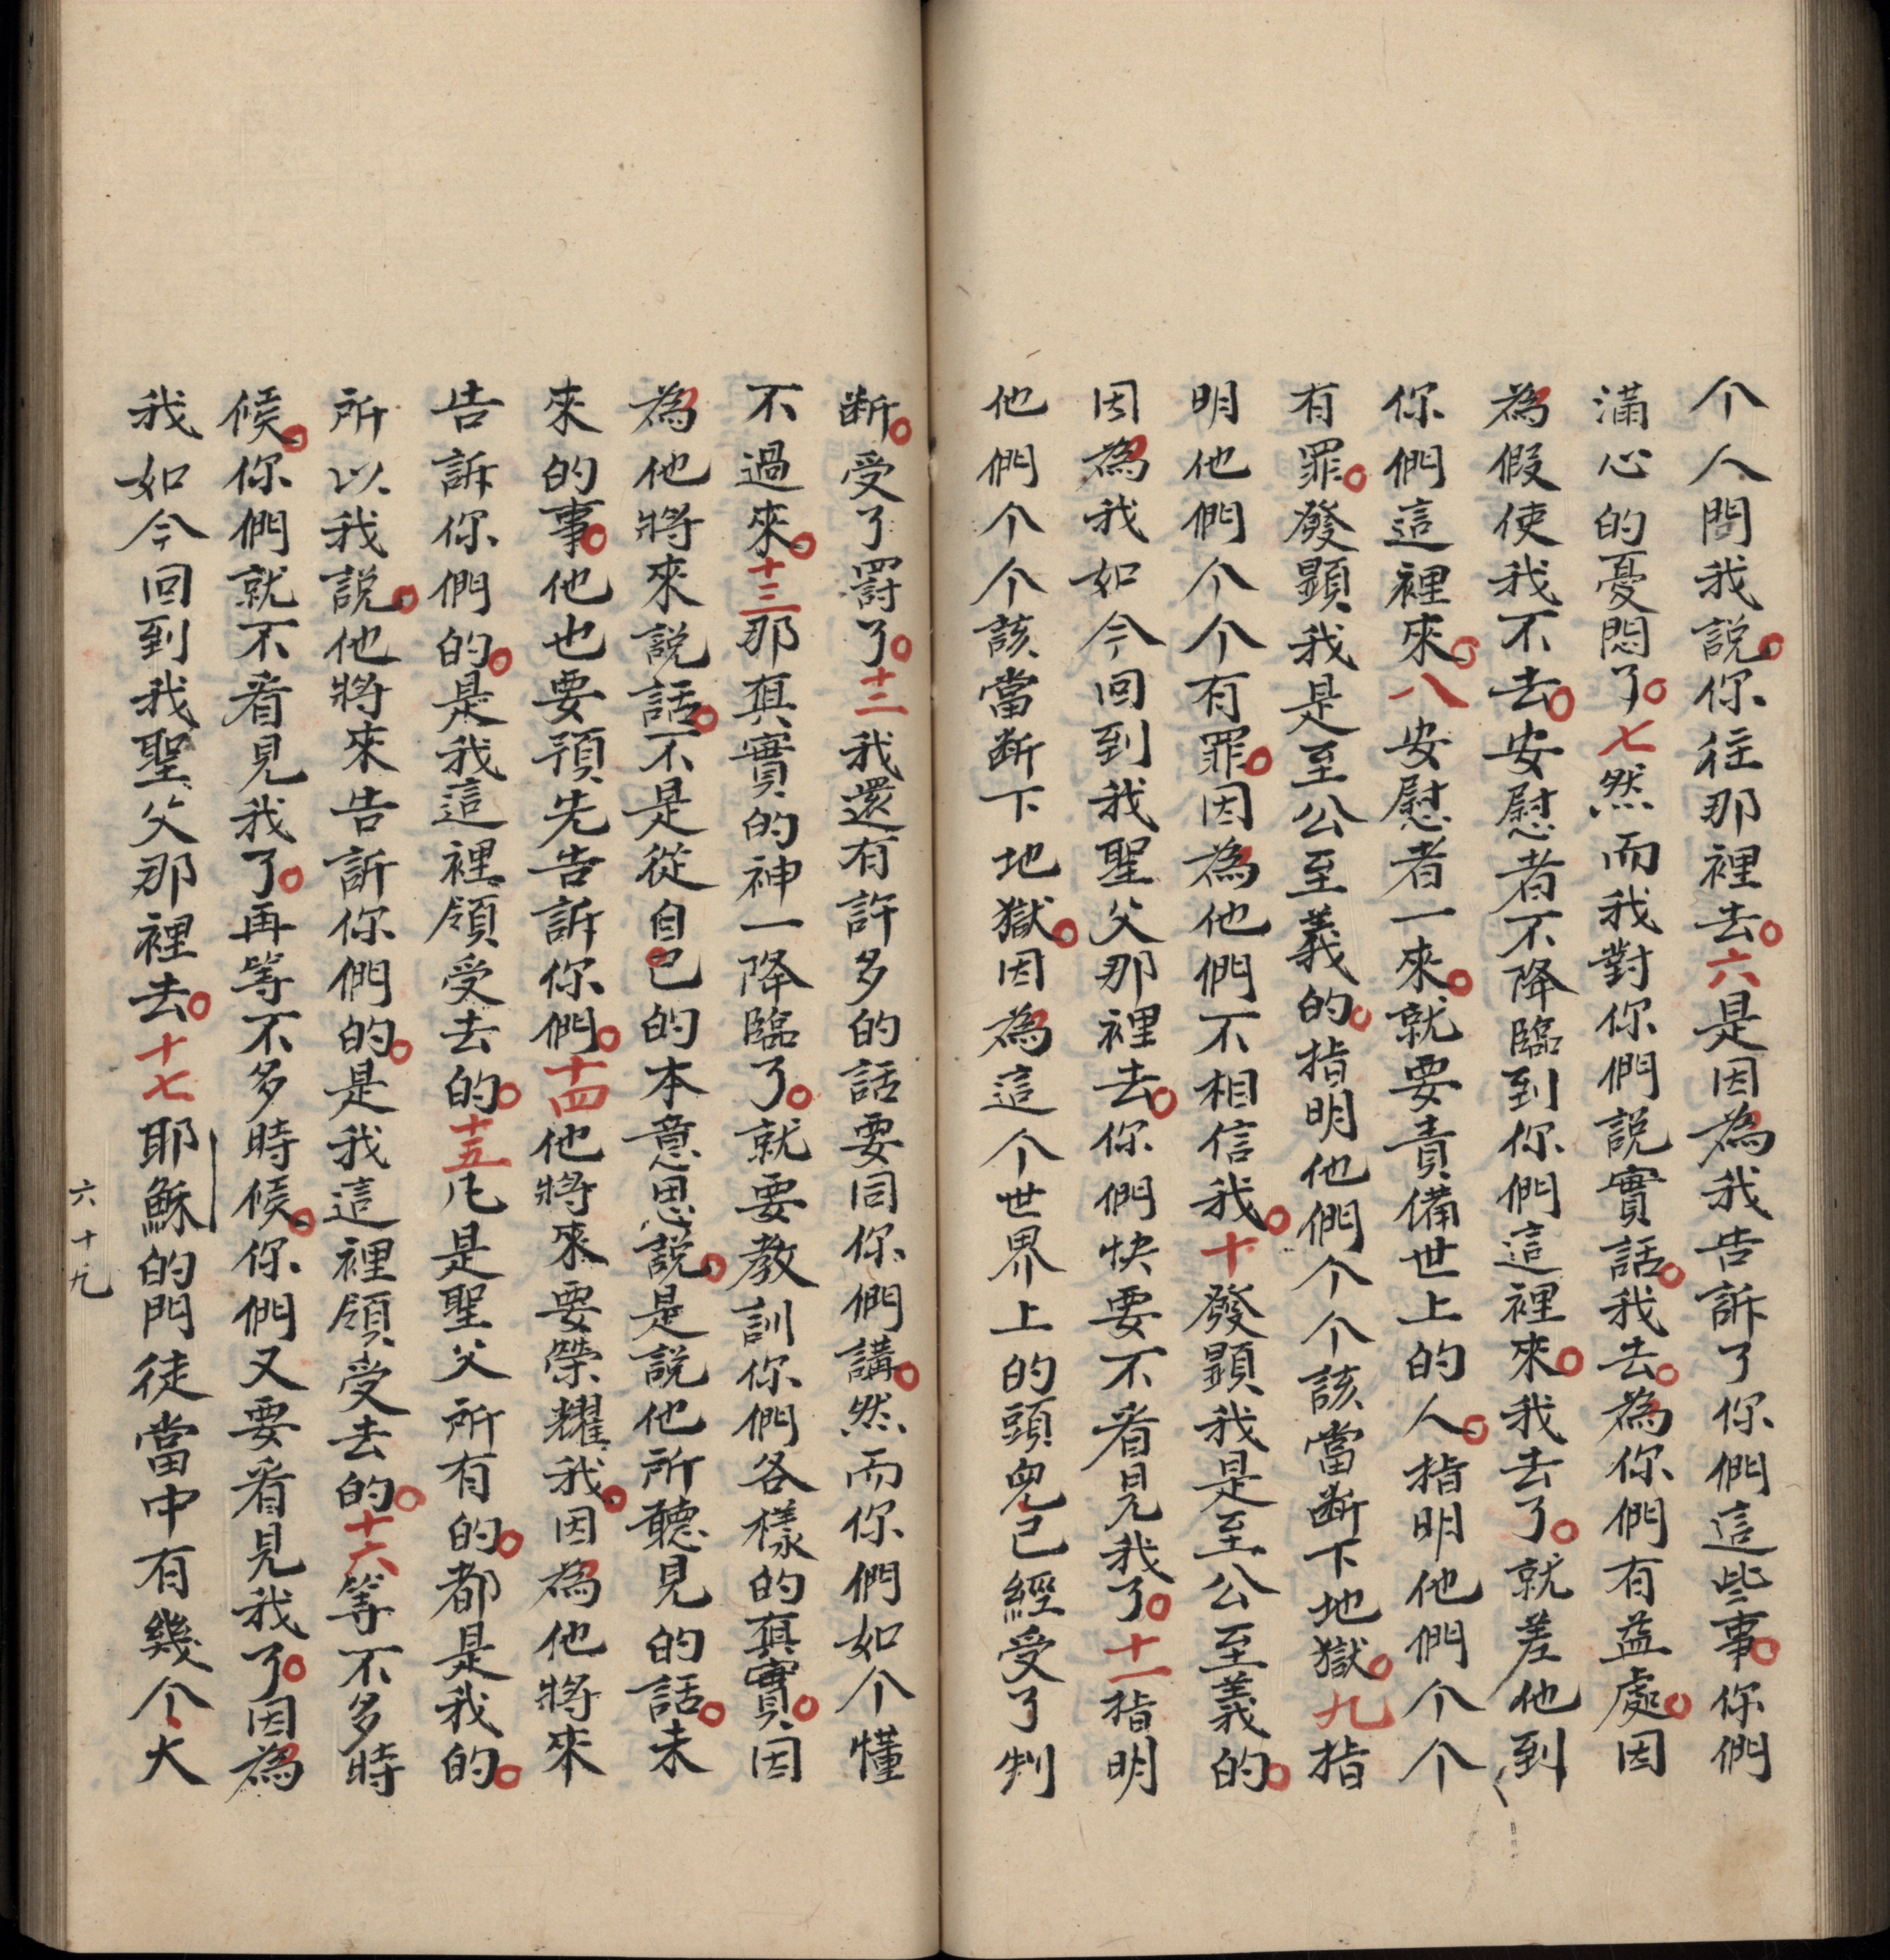 个人問我說。你往那裡去。六是因為我告訴了你們這些事。你們
滿心的憂悶了。七然而我對你們說實話。我去。為你們有益處。因
為假使我不去。安慰者不降臨到你們這裡來。我去了。就差他到
你們這裡來。八安慰者一來。就要責備世上的人。指明他們个个
有罪。發顕我是至公至義的。指明他們个个該當断下地獄。九指
明他們个个有罪。因為他們不相信我。十發顕我是至公至義的。
因為我如今回到我聖父那裡去。你們快要不看見我了。十一指明
他們个个該當断下地獄。因為這个世界上的頭兒已經受了判
断。受了罸了。十二我還有許多的話要同你們講。然而你們如个懂
不過來。十三那真實的神一降臨了。就要教訓你們各樣的真實。因
為他將來說話。不是從自己的本意思說。是說他所聽見的話。未
來的事。他也要預先告訴你們。十四他將來要榮耀我。因為他將來
告訴你們的。是我這裡領受去的。十五凡是聖父所有的。都是我的。
所以我説。他將來告訴你們的。是我這裡領受去的。十六等不多時
候。你們就不看見我了。再等不多時候。你們又要看見我了。因為
我如今回到我聖父那裡去。十七耶穌的門徒當中有幾个人
六十九